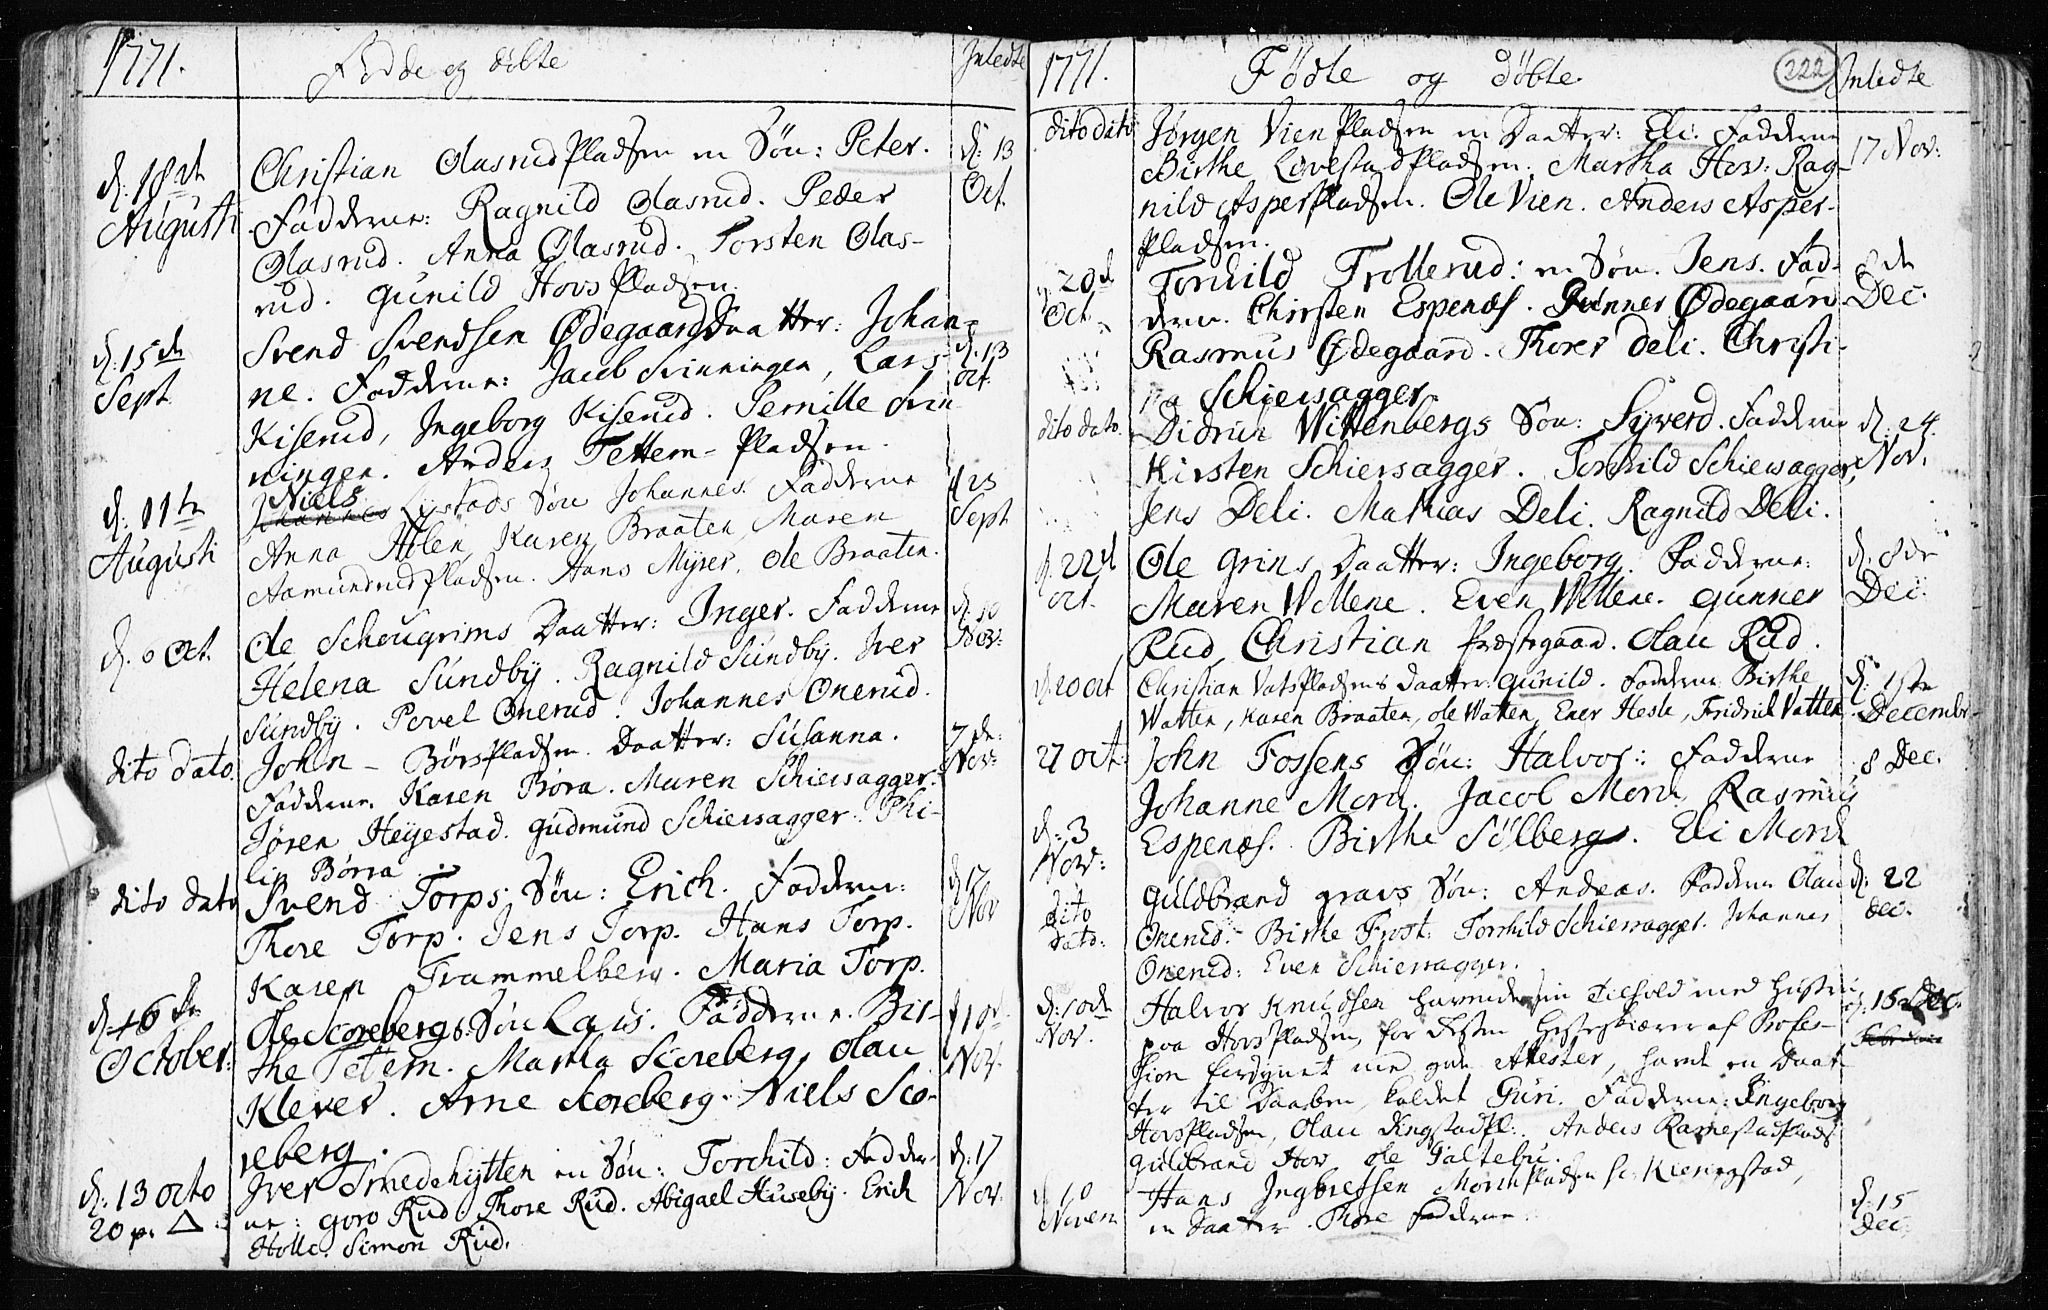 1771.
Födde og döbte
Inledte
d: 18de
Augusti
Christian Olasrud Pladsen en Sön: Peter.
Fadderne: Ragnild Olasrud. Peder
Olasrud. Anna Olasrud. Torsten Olas-
rud. Gunild Hovs Pladsen.
d: 13
Oct.
d: 15de
Sept
Svend Svendsen Ødegaards Daatter: Johan-
ne. Fadderne: Jacob Svinningen, Lars
Kiserud, Ingeborg Kiserud. Pernille Svin
ningen. Anders Tettem-Pladsen.
d. 13
oct.
d: 11te
Augusti
Niels
Lystads Sön Johannes. Fadderne
Anna Holen, Karen Braaten, Maren
Aamundrud Pladsen. Hans Myrer, Ole Braaten.
d 23
Sept
d. 6 Oct.
Ole Schougrims Daatter: Inger. Fadderne
Helena Sundby. Ragnild Sundby. Iver
Sundby. Povel Onerud. Johannes Onerud.
d. 10
Nov:
dito dato
John - Börs Pladsen. Daatter: Susanna.
Fadderne. Karen Börra. Maren Schiersagger.
Jören Heyestad. Gudmund Schiersagger. Phi-
lip Börra
7de:
Nov:
dito dato
Svend Torps Sön: Erich. Fadderne:
Thore Torp. Jens Torp. Hans Torp.
Karen Trammelberg. Maria Torp.
d 17
Nov
d. 6te
October:
Ole Scorebergs Sön Lars. Fadderne. Bir-
the Tetem. Martha Scoreberg, Olau
Klever. Arne Scoreberg. Niels Sco-
reberg.
d 10de
Nov.
d: 13 octo
20 p. Δ
Iver Smedehytten en Sön: Torchild: Fadder-
ne: Goro Rud. Thore Rud. Abigael Huseby. Erich
Holle. Simon Rud.
d: 17
Nov.
1771.
Födte og döbte
222
Inledte
dito dato
Jörgen Vien Pladsen en Daatter: Eli. Fadderne
Birthe Lovestad Pladsen. Martha Hov: Rag-
nild Asper Pladsen. Ole Vien. Anders Asper-
Pladsen.
17 Nov:
d. 20de
Oct.
Torchild Trollerud: en Sön. Jens. Fad-
derne. Chirsten Espenæs. Gunner Ødegaard
Rasmus Ødegaard. Thorer Deli. Christi-
na Schiersagger
8de
Dec.
dito dato.
Didrich Wittenbergs Sön: Syverd. Fadderne
Kirsten Schiersagger. Torchild Schiersagger,
Jens Deli. Mathias Deli. Ragnild Deli.
d. 24.
Nov.
d. 22d
oct.
Ole Grins Daatter: Ingeborg. Fadderne:
Maren Wellene. Even Wellene. Gunner
Rud Christian Præstegaard. Olau Rud.
d. 8de
Dec.
d. 20 oct
Christian Vats Pladsens Daatter: Gunild. Fadderne Birthe
Watten, Karen Braaten, Ole Watten, Ener Hesle, Fridrich Vatten
d: 1ste
Decembr.
27 oct:
John Fossens Sön: Halvor: Fadderne
Johanne Morch. Jacob Morch Rasmus
Espenæs. Birthe Sölberg. Eli Morch
8 Dec.
d: 3
Nov:
dito
dato:
Guldbrand gravs Sön: Andreas. Fadderne Olau
Onerud. Birthe Frost: Torchild Schiersagger. Johannes
Onerud: Even Schiersagger.
d: 22
dec.
d: 10de
Nov.
Halvor Knudsen havende sin Tilhold med Hustru
paa Hovs Pladsen, for Resten Hesteskiærer af Profes-
sion forsynet med gode Attester, havde en Daat
ter til Daaben kaldet Guri. Fadderne: Ingeborg
Hovs Pladsen, Olau Dingstad Pl. Anders Ramestad Plads.
Gulbrand Hov Ole Taltebu.
d. 15 Dec.
d 10
Novem
Hans Ingbretsen Mörch Pladsen
en Daatter. Thore Fadderne:
d: 15
Dec.